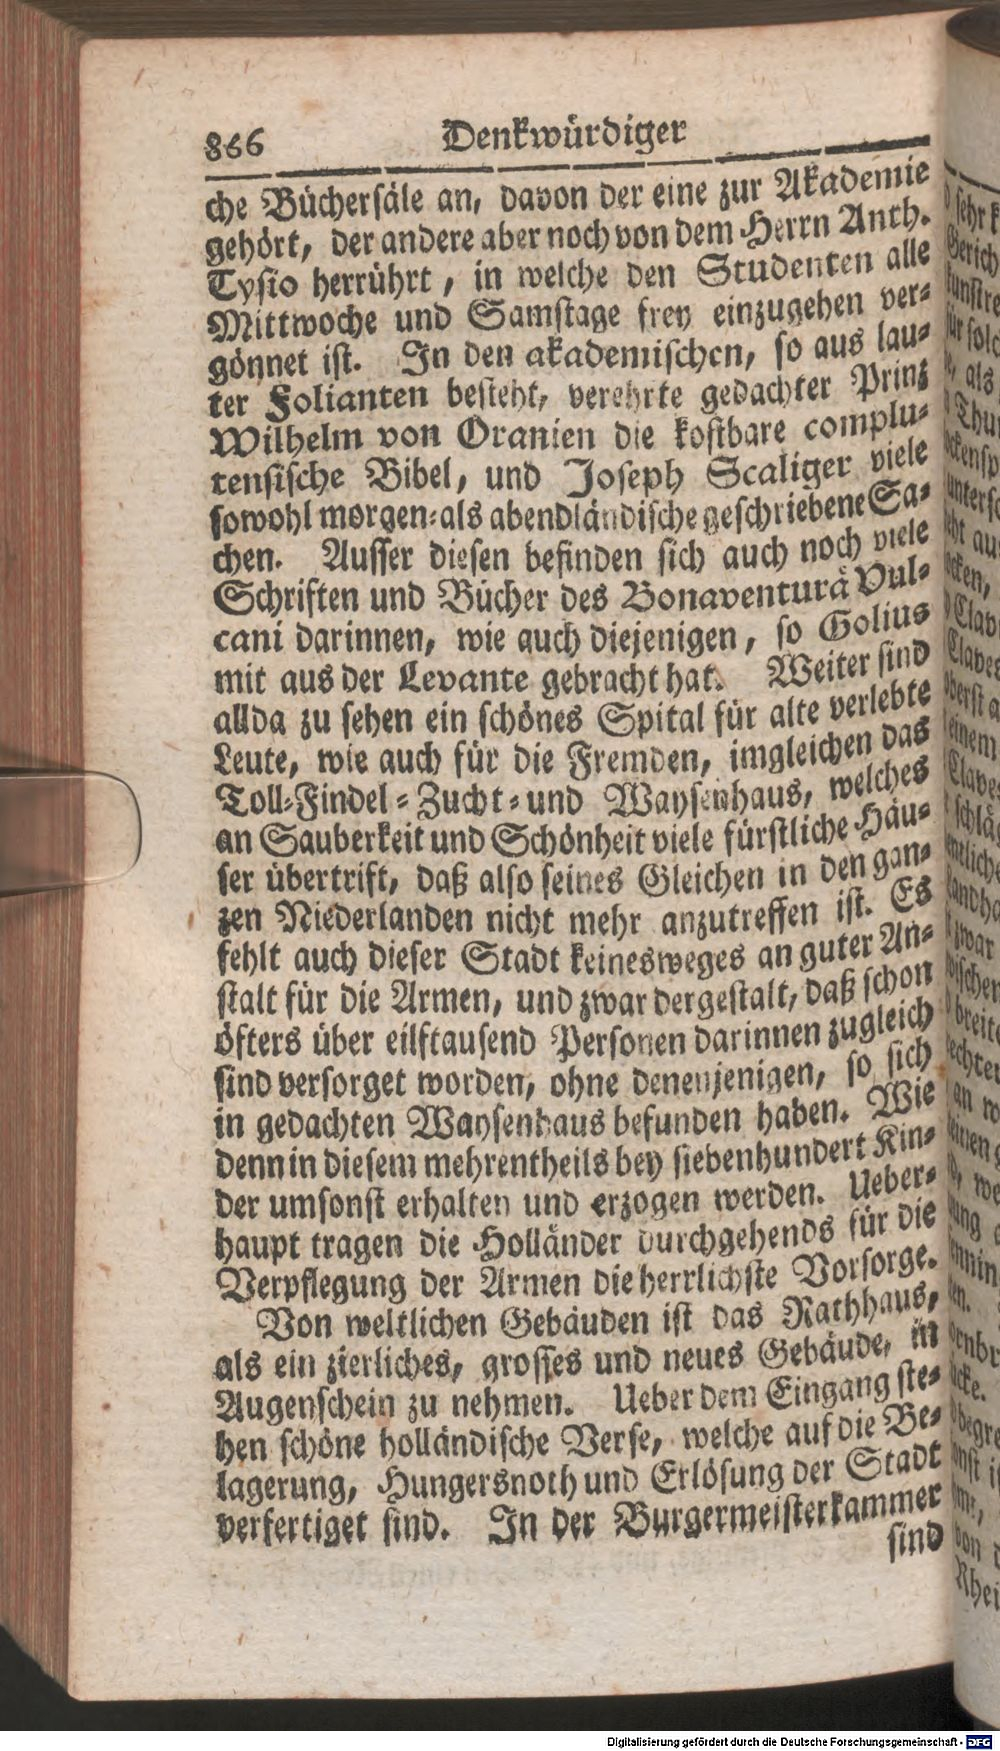 866 Denkwürdiger
che Büchersäle an, davon der eine zur Akademie
gehört, der andere aber noch von dem Herrn Anth.
Tysio herrührt, in welche den Studenten alle
Mittwoche und Samstage frey einzugehen ver-
gönnet ist. In den akademischen, so aus lau-
ter Folianten besteht, verehrte gedachter Prinz
Wilhelm von Oranien die kostbare complu-
tensische Bibel, und Joseph Scaliger viele
sowohl morgen-als abendländische geschriebene Sa-
chen. Ausser diesen befinden sich auch noch viele
Schriften und Bücher des Bonaventurä Vul-
cani darinnen, wie auch diejenigen, so Golius
mit aus der Levante gebracht hat. Weiter sind
allda zu sehen ein schönes Spital für alte verlebte
Leute, wie auch für die Fremden, imgleichen das
Toll-Findel-Zucht-und Waysenhaus, welches
an Sauberkeit und Schönheit viele fürstliche Häu-
ser übertrift, daß also seines Gleichen in den gan-
zen Niederlanden nicht mehr anzutreffen ist. Es
fehlt auch dieser Stadt keinesweges an guter An-
stalt für die Armen, und zwar dergestalt, daß schon
öfters über eilftausend Personen darinnen zugleich
sind versorget worden, ohne denenjenigen, so sich
in gedachten Waysenhaus befunden haben. Wie
denn in diesem mehrentheils bey siebenhundert Kin-
der umsonst erhalten und erzogen werden. Ueber-
haupt tragen die Holländer durchgehends für die
Verpflegung der Armen die herrlichste Vorsorge.
Von weltlichen Gebäuden ist das Rathhaus,
als ein zierliches, grosses und neues Gebäude, in
Augenschein zu nehmen. Ueber dem Eingang ste-
hen schöne holländische Verse, welche auf die Be-
lagerung, Hungersnoth und Erlösung der Stadt
verfertiget sind. In der Burgermeisterkammer
sind
Digitalisierung gefördert durch die Deutsche Forschungsgemeinschaft - DFG